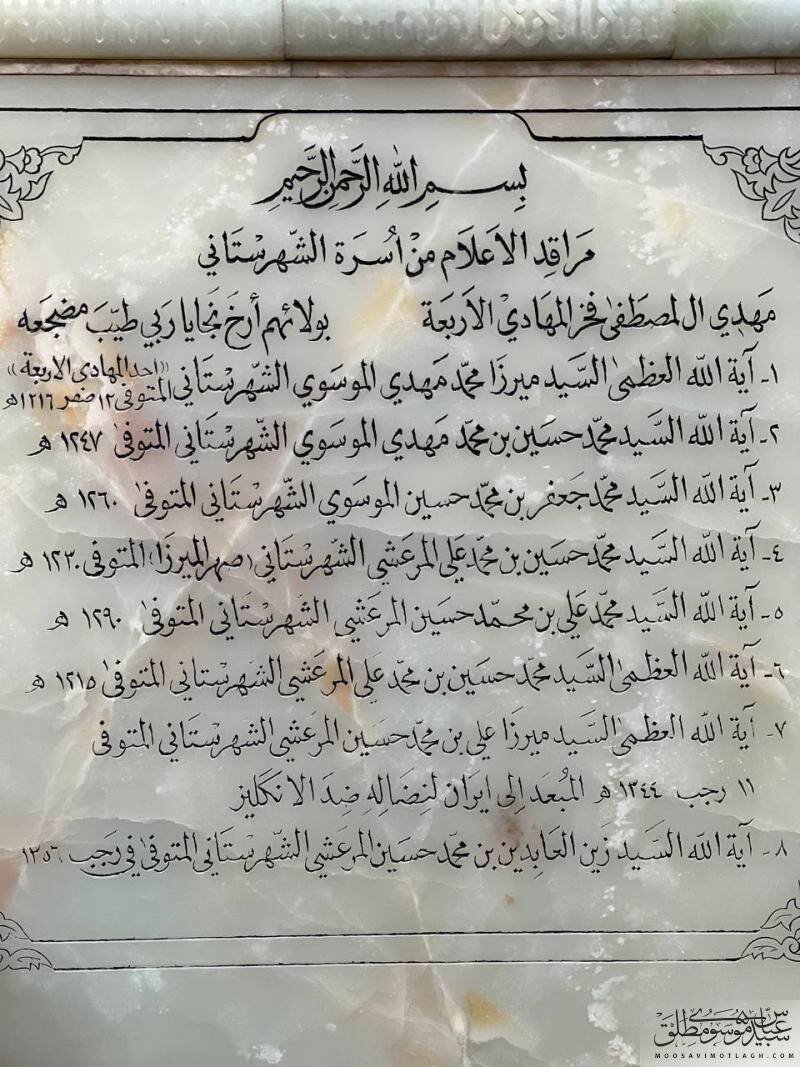 بِسْمِ اللهِ الرَّحْمٰنِ الرَّحِيْمِ
مَراقِد الأعلام مِنْ أُسرَة الشّهرِسْتَاني
مَهْدِي ال لمصطَفىٰ فخر المهاديْ الأربعَة بولائهم أرخ نجايا ربي طيّبَ مضجعَه
١- آية الله العظمىٰ السَّيد ميرزَا محمّد مَهدي الموسَوي الشّهرسْتَاني «احد المهادي الاربعة» المتوفى ١٢ صفر ١٢١٦ هـ
٢- آية الله السَّيد محمّد حسَين بن محمّد مَهدي الموسَوي الشّهرسْتَاني المتوفىٰ ١٢٤٧ هـ
٣- آية الله السَّيد محمّد جَعفر بن محمّد حسين الموسَوي الشّهرسْتَاني المتوفىٰ ١٢٦٠ هـ
٤- آية الله السَّيد محمّد حسَين بن محمّد عَلي المرعَشي الشّهرسْتَاني (صهر الميرزَا) المتوفى ١٢٣٠ هـ
٥- آية الله السَّيد محمّد عَلي بن محمّد حسَين المرعَشي الشّهرسْتَاني المتوفىٰ ١٢٩٠ هـ
٦- آية الله العظمىٰ السَّيد محمّد حسَين بن محمّد عَلي المرعَشي الشّهرستاني المتوفىٰ ١٢١٥ هـ
٧- آية الله العظمىٰ السَّيد ميرزَا عَلي بن محمّد حسَين المرعَشي الشّهرسْتَاني المتوفىٰ
١١ رجب ١٣٤٤ هـ المُبعَد إلى ايرَان لنِضَالِهِ ضِدَ الانكَليز
٨- آية الله السَّيد زَين العَابِدين بن محمّد حسَين المرعَشي الشّهرسْتَاني المتوفىٰ في رَجَب ١٣٥٦
سید عباس موسوی مطلق
MOOSAVIMOTLAGH.COM